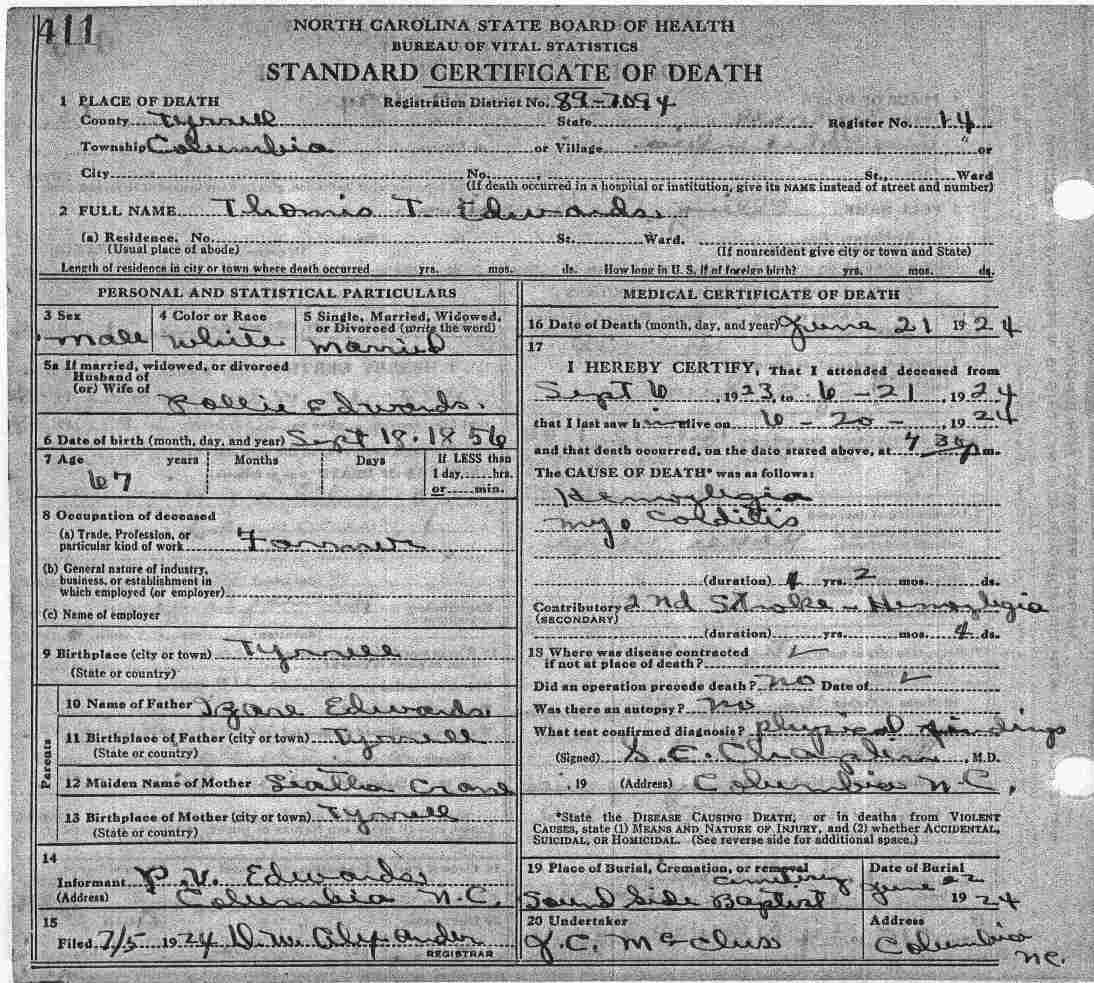 411
NORTH CAROLINA STATE BOARD OF HEALTH
BUREAU OF VITAL STATISTICS
STANDARD CERTIFICATE OF DEATH
1 PLACE OF DEATH Registration District No. 89-7094
County Tyrrell State Register No. 14
Township Columbia or Village or
City No. , St., Ward
(If death occurred in a hospital or institution, give its NAME instead of street and number)
2 FULL NAME Thomis T. Edwards
(a) Residence. No. St. Ward.
(Usual place of abode) (If nonresident give city or town and State)
Length of residence in city or town where death occurred yrs. mos. ds. How long in U. S. if of foreign birth? yrs. mos. ds.
PERSONAL AND STATISTICAL PARTICULARS
3 Sex 4 Color or Race 5 Single, Married, Widowed, or Divorced (write the word)
male white married
5a If married, widowed, or divorced
Husband of
(or) Wife of
Pollie Edwards.
6 Date of birth (month, day, and year) Sept 18. 1856
7 Age years Months Days If LESS than
67 1 day, hrs.
or min.
8 Occupation of deceased
(a) Trade, Profession, or
particular kind of work Farmer
(b) General nature of industry,
business, or establishment in
which employed (or employer)
(c) Name of employer
9 Birthplace (city or town) Tyrrell
(State or country)
Parents
10 Name of Father Edwards
11 Birthplace of Father (city or town) Tyrrell
(State or country)
12 Maiden Name of Mother
13 Birthplace of Mother (city or town) Tyrrell
(State or country)
14
Informant P. V. Edwards
(Address) Columbia N.C.
15
Filed 7/5 1924 D. W. Alexander
REGISTRAR
MEDICAL CERTIFICATE OF DEATH
16 Date of Death (month, day, and year) June 21 1924
17
I HEREBY CERTIFY, That I attended deceased from
Sept 6, 1923, to 6-21, 1924
that I last saw him alive on 6-20-, 1924
and that death occurred, on the date stated above, at 4 30 p m.
The CAUSE OF DEATH* was as follows:
Hemoplegia
myo Colditis
(duration) yrs. 2 mos. ds.
Contributory 2nd Stroke - Hemoplegia
(SECONDARY)
(duration) yrs. mos. 4 ds.
18 Where was disease contracted
if not at place of death?
Did an operation precede death? no Date of
Was there an autopsy? no
What test confirmed diagnosis? physical findings
(Signed) Chaplin, M.D.
, 19 (Address) Columbia N.C.
*State the DISEASE CAUSING DEATH, or in deaths from VIOLENT
CAUSES, state (1) MEANS AND NATURE OF INJURY, and (2) whether ACCIDENTAL,
SUICIDAL, OR HOMICIDAL. (See reverse side for additional space.)
19 Place of Burial, Cremation, or removal Date of Burial
Sound Side Baptist cemetery June 22 1924
20 Undertaker Address
J. C. Columbia
N.C.